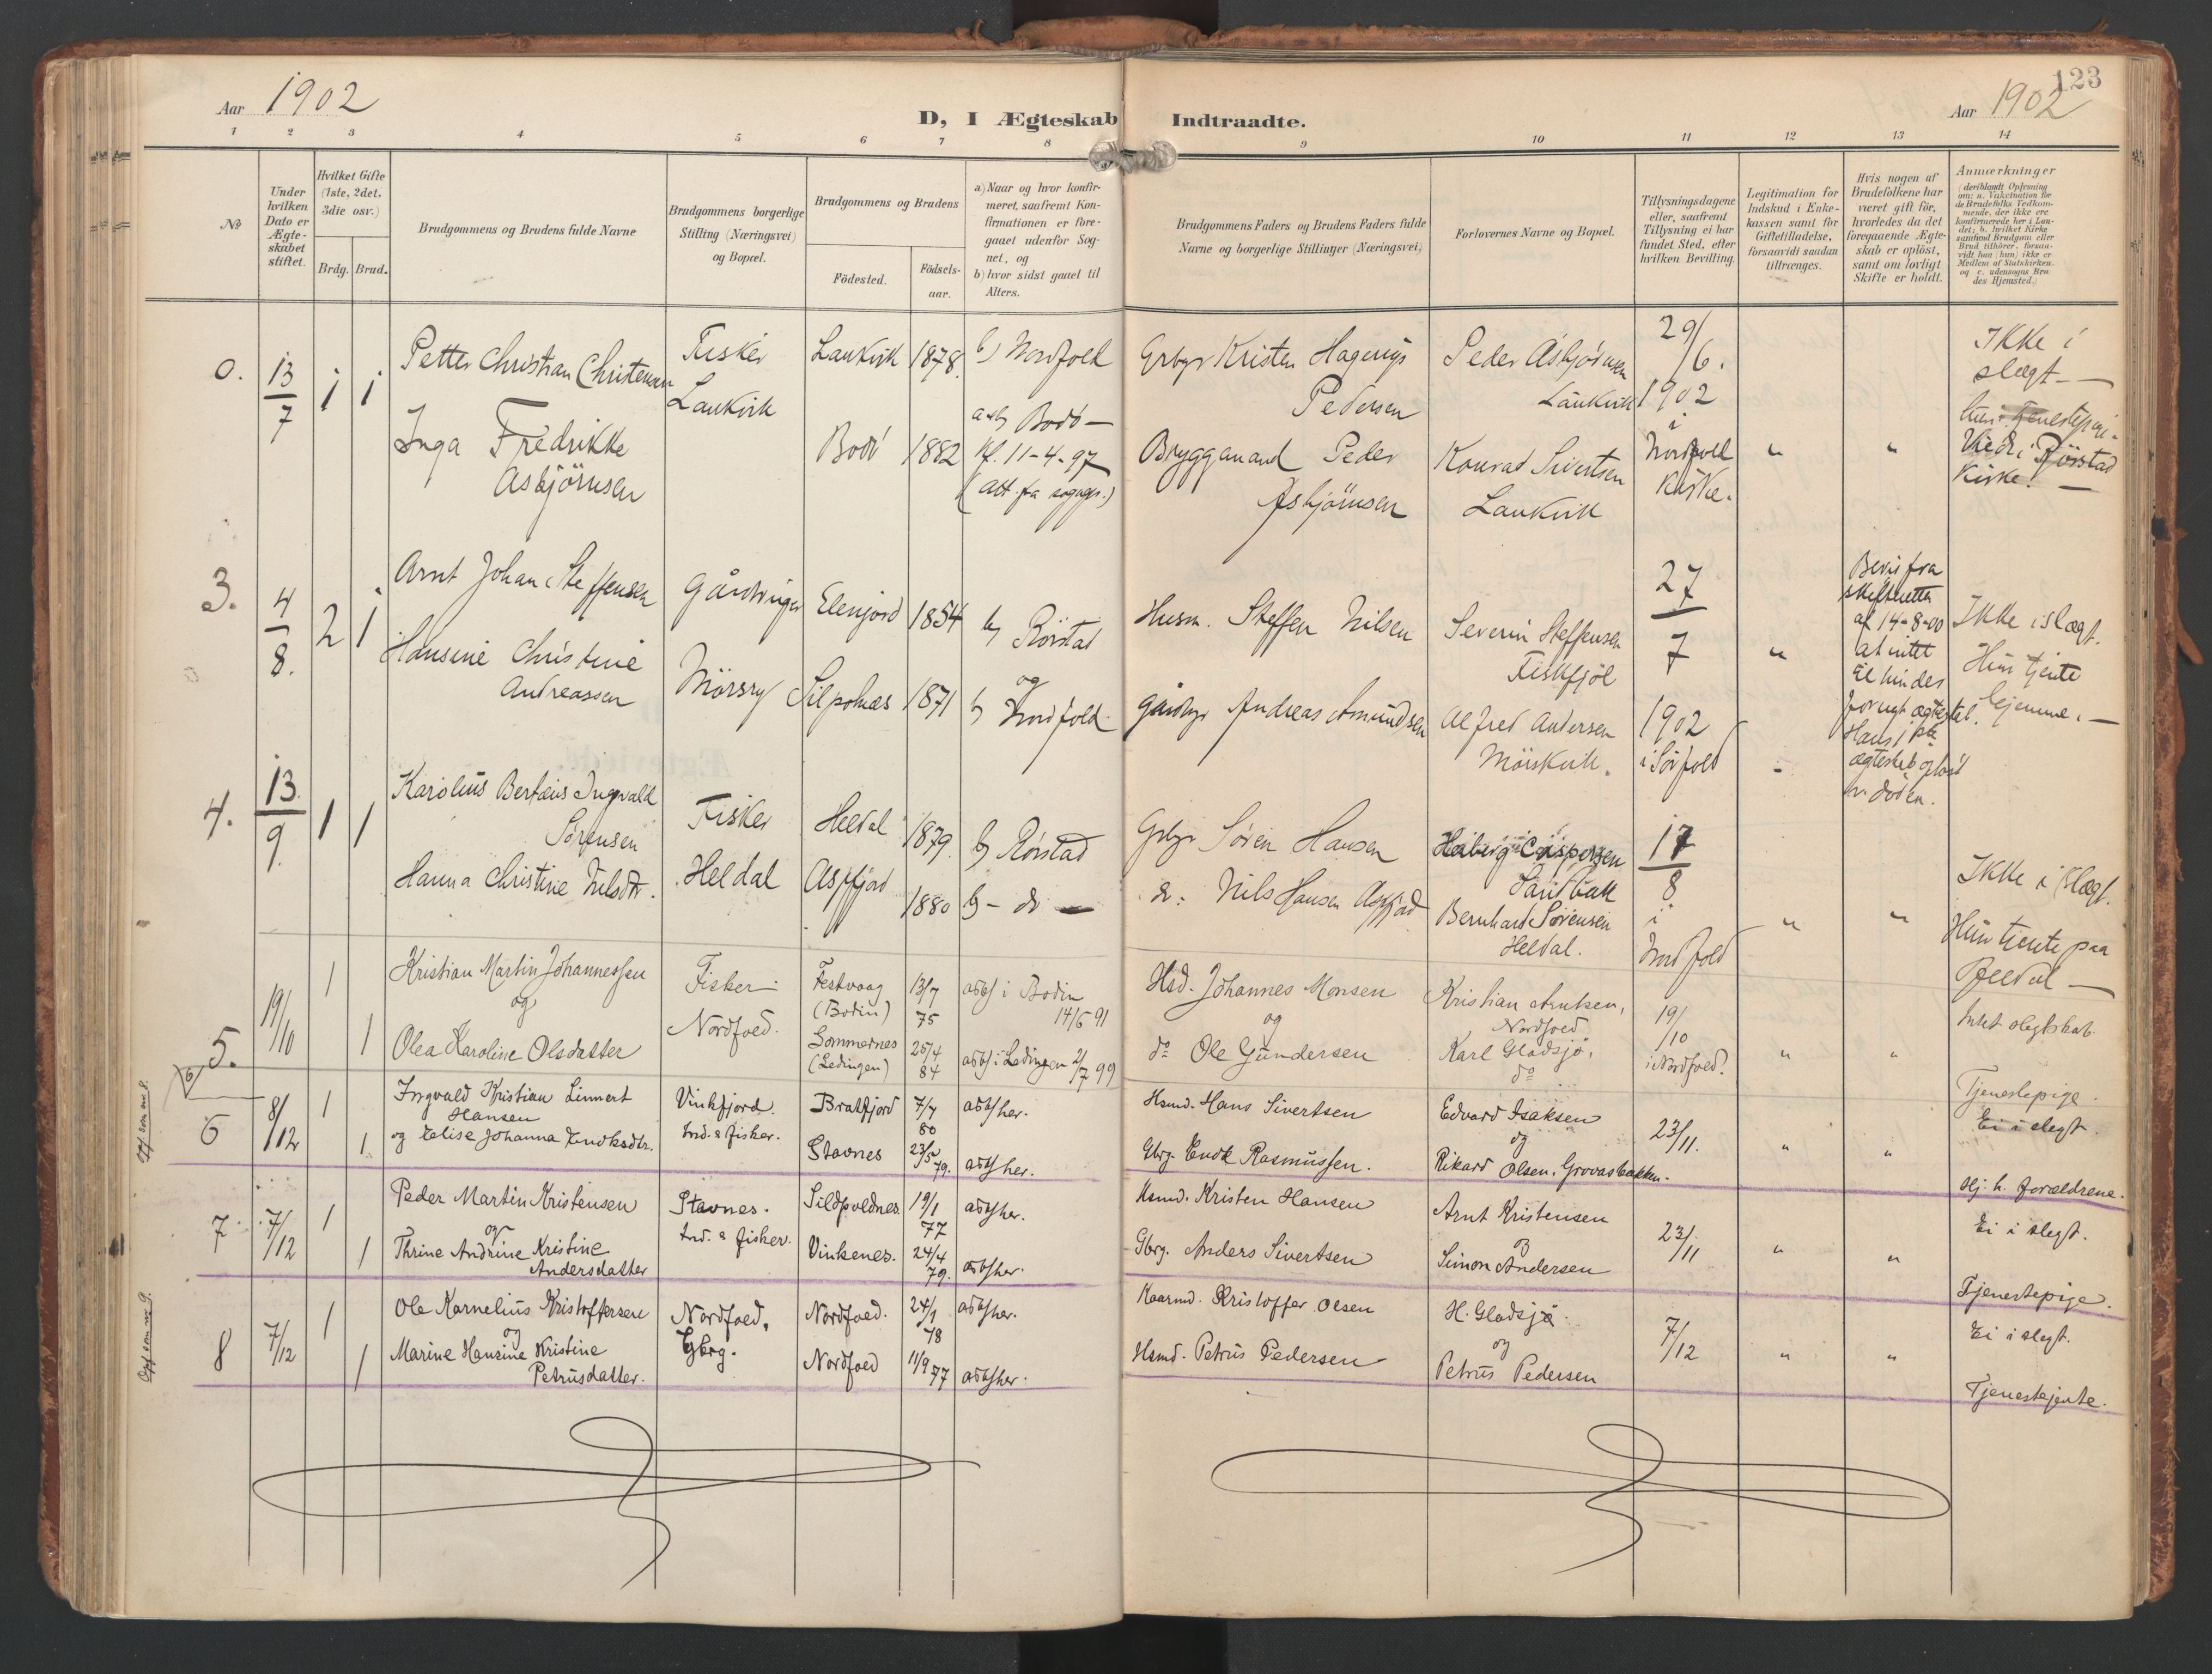 Aar 1902
D, I Ægteskab Indtraadte.
Aar 1902
123
1 2 3 4 5 6 7 8 9 10 11 12 13 14
No
Under hvilken Dato er Ægteskabet stiftet.
Hvilket Gifte (1ste, 2det, 3die osv.)
Brdg. Brud.
Brudgommens og Brudens fulde Navne
Brudgommens borgerlige Stilling (Næringsvei) og Bopæl.
Brudgommens og Brudens
Födested.
Födselsaar.
a) Naar og hvor konfirmeret, saafremt Konfirmationen er foregaaet udenfor Sognet, og
b) hvor sidst gaaet til Alters.
Brudgommens Faders og Brudens Faders fulde Navne og borgerlige Stillinger (Næringsvei)
Forlovernes Navne og Bopæl.
Tillysningsdagene eller, saafremt Tillysning ei har fundet Sted, efter hvilken Bevilling.
Legitimation for Indskud i Enkekassen samt for Giftetilladelse, forsaavidt saadan tiltrænges.
Hvis nogen af Brudefolkene har været gift för, hvorledes da det foregaaende Ægteskab er oplöst, samt om lovligt Skifte er holdt.
Anmærkninger
(deriblandt Oplysning om: a. Vakcination for de Brudefolks Vedkommende, der ikke ere konfirmerede her i Landet; b. hvilket Kirkesamfund Brudgom eller Brud tilhörer, forsaavidt han (hun) ikke er Medlem af Statskirken, og c. udensogns Brudes Hjemsted.)
0. 13/7 1 1 Petter Christian Christensen Fisker Laukvik Laukvik 1878. b) Nordfold Grbgr Kristen Hagerup Pedersen Peder Asbjørnsen Laukvik 29/6. 1902 Ikke i slægt —
Inga Fredrikke Asbjörnsen Bodö 1882 a+b Bodö — Kf. 11-4-97 (att. fra sognepr.) Bryggemand Peder Asbjörnsen Konrad Sivertsen Laukvik i Nordfold Kirke. " " Viedt i Rörstad Kirke. —
3. 4/8. 2 1 Arnt Johan Steffensen Gårdbruger Elenjord 1854 b) Rörstad Husm. Steffen Nilsen Severin Steffensen Fiskfjöl 27/7 " Bevis fra skifteretten af 14-8-00 at intet til hinder for nyt ægteskab. Ikke i slægt.
Hansine Christine Andreassen Mörsry Silpolnæs 1871 og b) Nordfold. Gårdbgr Andreas Amundsen Alfred Andersen Mörskvik. 1902 i Sörfold Hans 1ste ægteskab oplöst v. döden. Hun tjente hjemme. —
4. 13/9. 1 1 Karolius Bertæus Ingvald Sörensen Fisker Heldal 1879. b) Rörstad Grbgr Sören Hansen Heiberg Caspersen Sandbakk 17/8 Ikke i slægt.
Hanna Christine Nilsdtr. Heldal Aspfjord 1880 b) - do — do: Nils Hansen Aspfjord Bernhard Sörensen Heldal. i Nordfold " " Hun tjente paa Heldal —
5. 19/10 1 Kristian Martin Johannessen Fisker. Festvaag (Bodin) 13/7 75 a & b) i Bodin 14/6 91 Hsd. Johannes Monsen Kristian Arntsen, Nordfoed. 19/10 Intet slegtskab.
og
1 Olea Karoline Olsdatter Nordfoed. Sommernes (Lødingen) 25/4 84 a & b) i Lødingen 2/7 99 do Ole Gundersen Karl Gladsjø, do i Nordfoed. " " Tjenestepige.
6 8/12 1 Ingvald Kristian Linnert Hansen Vinkfjord. Bratfjord 7/7 80 a & b) her. Hsmd. Hans Sivertsen Edvard Isaksen og 23/11. Ei i slegt.
1 og Elise Johanna Enoksdtr. Ind. & fisker. Stavnes 23/5 79. a & b) her. Gbrg. Enok Rasmussen. Rikard Olsen, Grovasbakken. " " Hj. h. forældrene.
7 7/12 1 Peder Martin Kristensen Stavnes. Sildpoldnes. 19/1 77 a & b) her. Hsmd. Kristen Hansen Arnt Kristensen og 23/11 Ei i slegt.
og
1 Thrine Andrine Kristine Andersdatter Ind. & fisker. Vinkenes. 24/4 79. a & b) her. Gbrg. Anders Sivertsen Simon Andersen " " Tjenestepige.
8 7/12 1 Ole Kornelius Kristoffersen Nordfoed, Nordfoed. 24/1 78 a & b) her. Kaarmd. Kristoffer Olsen H. Gladsjø. og 7/12 Ei i slegt.
og
1 Marine Hansine Kristine Petrusdatter. Gbrg. Nordfoed 11/9 77 a & b) her. Hsmd. Petrus Pedersen Petrus Pedersen " " Tjenestejente.
Opf som no 8.
Opf som no 9.